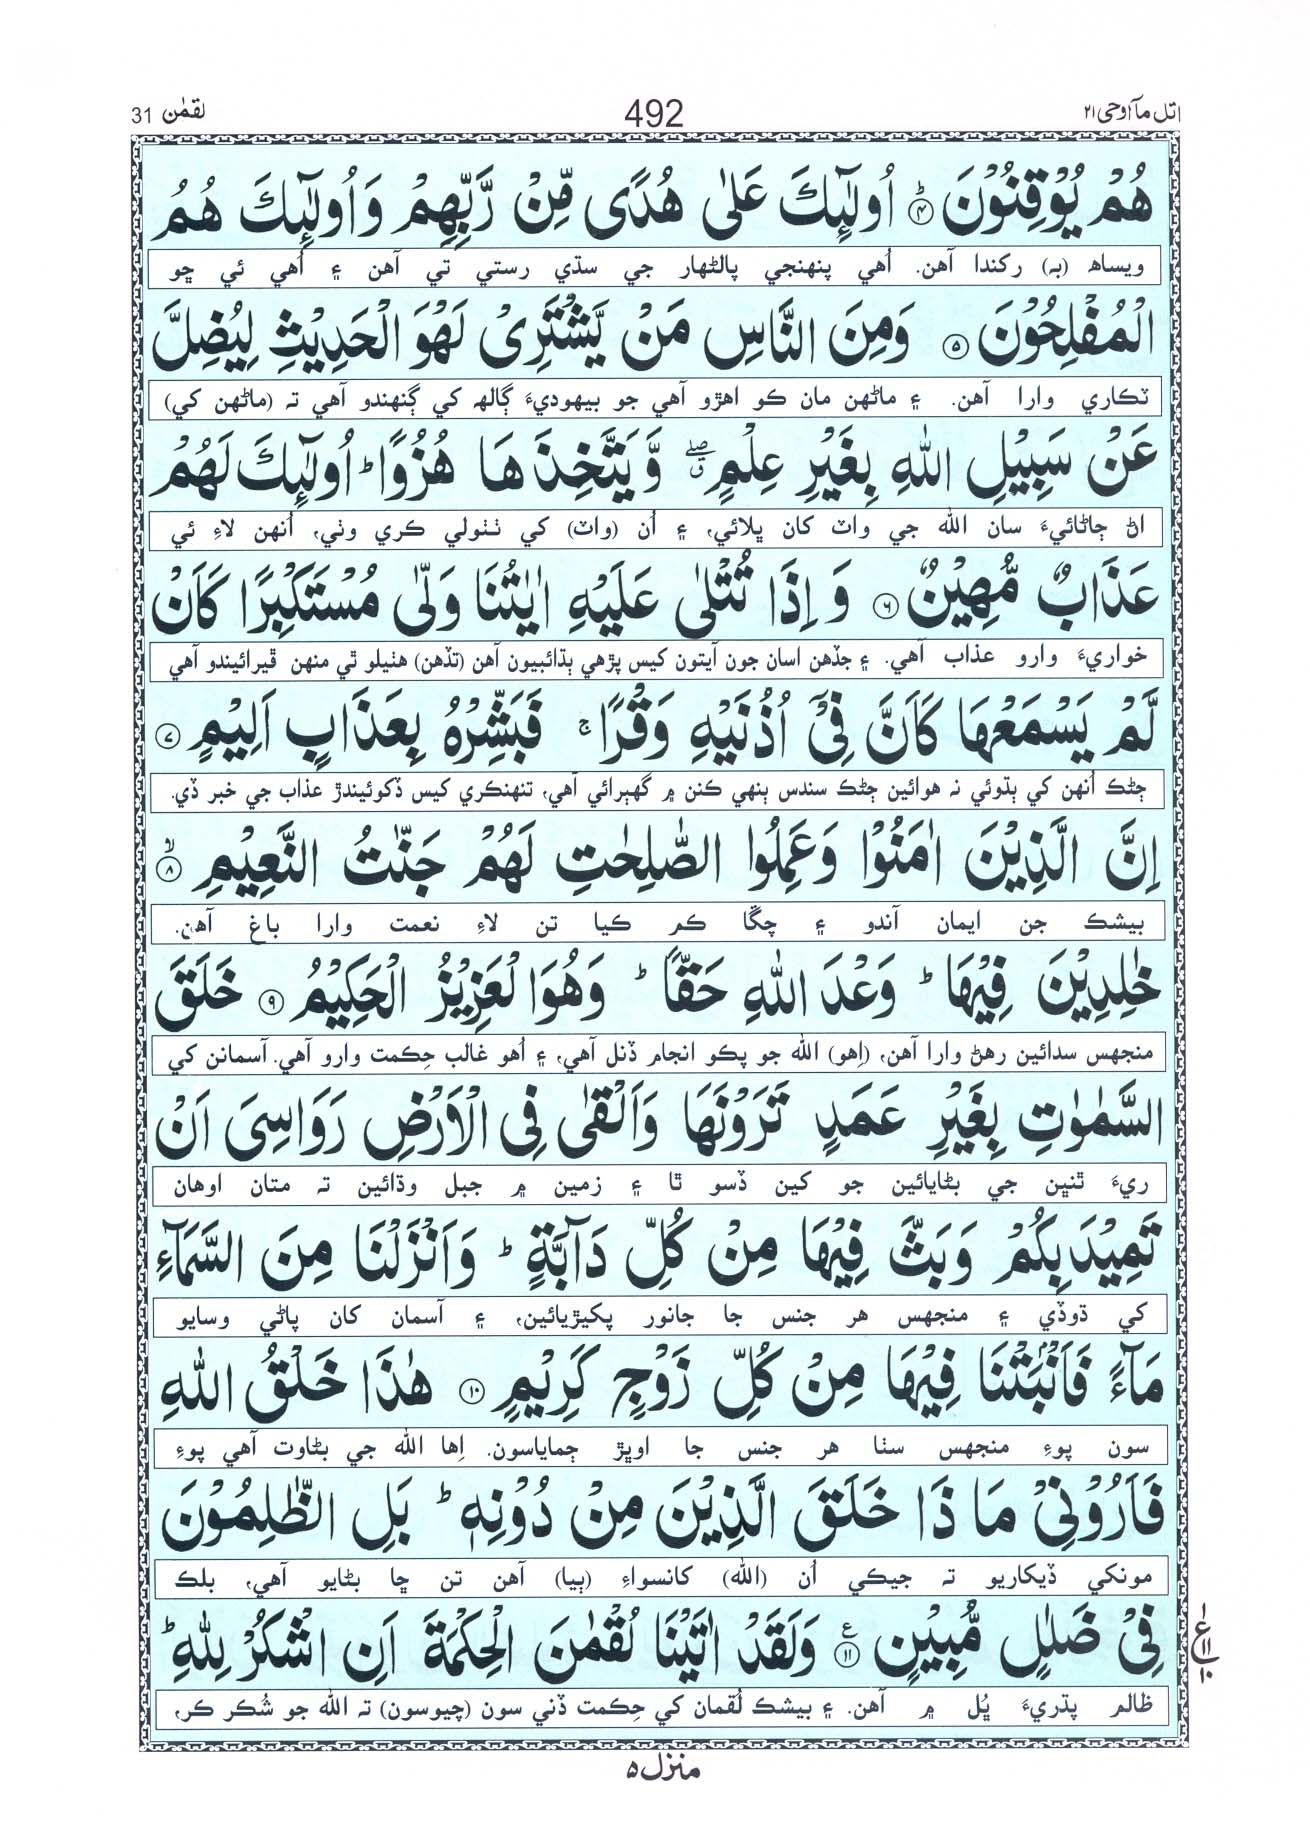 اتل مآ اوحی ۲۱ 492 لقمٰن 31
هُمْ يُوْقِنُوْنَ ۴ؕ اُولٰٓئِكَ عَلٰى هُدًى مِّنْ رَّبِّهِمْ وَاُولٰٓئِكَ هُمُ
ويساھ (بہ) رکندا آهن. اُهي پنهنجي پالڻھار جي سڌي رستي تي آهن ۽ اُهي ئي ڇو
الْمُفْلِحُوْنَ ۵ وَمِنَ النَّاسِ مَنْ يَّشْتَرِىْ لَهْوَ الْحَدِيْثِ لِيُضِلَّ
ٽڪاري وارا آهن. ۽ ماڻهن مان ڪو اهڙو آهي جو بيهوديءَ ڳالھ کي ڳنهندو آهي تہ (ماڻهن کي)
عَنْ سَبِيْلِ اللّٰهِ بِغَيْرِ عِلْمٍ ۖ وَّيَتَّخِذَهَا هُزُوًا ؕ اُولٰٓئِكَ لَهُمْ
اڻ ڄاڻائيءَ سان الله جي واٽ کان ڀلائي، ۽ اُن (واٽ) کي ٺٺولي ڪري وٺي، اُنهن لاءِ ئي
عَذَابٌ مُّهِيْنٌ ۶ وَ اِذَا تُتْلٰى عَلَيْهِ اٰيٰتُنَا وَلّٰى مُسْتَكْبِرًا كَاَنْ
خواريءَ وارو عذاب آهي. ۽ جڏهن اسان جون آيتون کيس پڙهي ٻڌائبيون آهن (تڏهن) هٺيلو ٿي منهن ڦيرائيندو آهي
لَّمْ يَسْمَعْهَا كَاَنَّ فِىْٓ اُذُنَيْهِ وَقْرًا ۚ فَبَشِّرْهُ بِعَذَابٍ اَلِيْمٍ ۷
ڄڻڪ اُنهن کي ٻڌوئي نہ هوائين ڄڻڪ سندس ٻنهي ڪنن ۾ گهٻرائي آهي، تنهنڪري کيس ڏکوئيندڙ عذاب جي خبر ڏي.
اِنَّ الَّذِيْنَ اٰمَنُوْا وَعَمِلُوا الصّٰلِحٰتِ لَهُمْ جَنّٰتُ النَّعِيْمِ ۸ۙ
بيشڪ جن ايمان آندو ۽ چڱا ڪم ڪيا تن لاءِ نعمت وارا باغ آهن.
خٰلِدِيْنَ فِيْهَا ؕ وَعْدَ اللّٰهِ حَقًّا ؕ وَهُوَ الْعَزِيْزُ الْحَكِيْمُ ۹ خَلَقَ
منجهس سدائين رهڻ وارا آهن، (اِهو) الله جو پڪو انجام ڏنل آهي، ۽ اُهو غالب حِڪمت وارو آهي. آسمانن کي
السَّمٰوٰتِ بِغَيْرِ عَمَدٍ تَرَوْنَهَا وَاَلْقٰى فِى الْاَرْضِ رَوَاسِىَ اَنْ
ريءَ ٿنڀن جي بڻايائين جو کين ڏسو ٿا ۽ زمين ۾ جبل وڌائين تہ متان اوهان
تَمِيْدَ بِكُمْ وَبَثَّ فِيْهَا مِنْ كُلِّ دَآبَّةٍ ؕ وَاَنْزَلْنَا مِنَ السَّمَآءِ
کي ڌوڏي ۽ منجهس هر جنس جا جانور پکيڙيائين، ۽ آسمان کان پاڻي وسايو
مَآءً فَاَنْۢبَتْنَا فِيْهَا مِنْ كُلِّ زَوْجٍ كَرِيْمٍ ۱۰ هٰذَا خَلْقُ اللّٰهِ
سون پوءِ منجهس سٺا هر جنس جا اوڀڙ ڄماياسون. اِها الله جي بڻاوت آهي پوءِ
فَاَرُوْنِىْ مَا ذَا خَلَقَ الَّذِيْنَ مِنْ دُوْنِهٖ ؕ بَلِ الظّٰلِمُوْنَ
مونکي ڏيکاريو تہ جيڪي اُن (الله) کانسواءِ (ٻيا) آهن تن ڇا بڻايو آهي، بلڪ
فِىْ ضَلٰلٍ مُّبِيْنٍ ۱۱ع وَلَقَدْ اٰتَيْنَا لُقْمٰنَ الْحِكْمَةَ اَنِ اشْكُرْ لِلّٰهِ ؕ
ظالم پڌريءَ ڀُل ۾ آهن. ۽ بيشڪ لُقمان کي حِڪمت ڏني سون (چيوسون) تہ الله جو شُڪر ڪر،
۱ ع ۱۱ ۱۰
منزل ۵